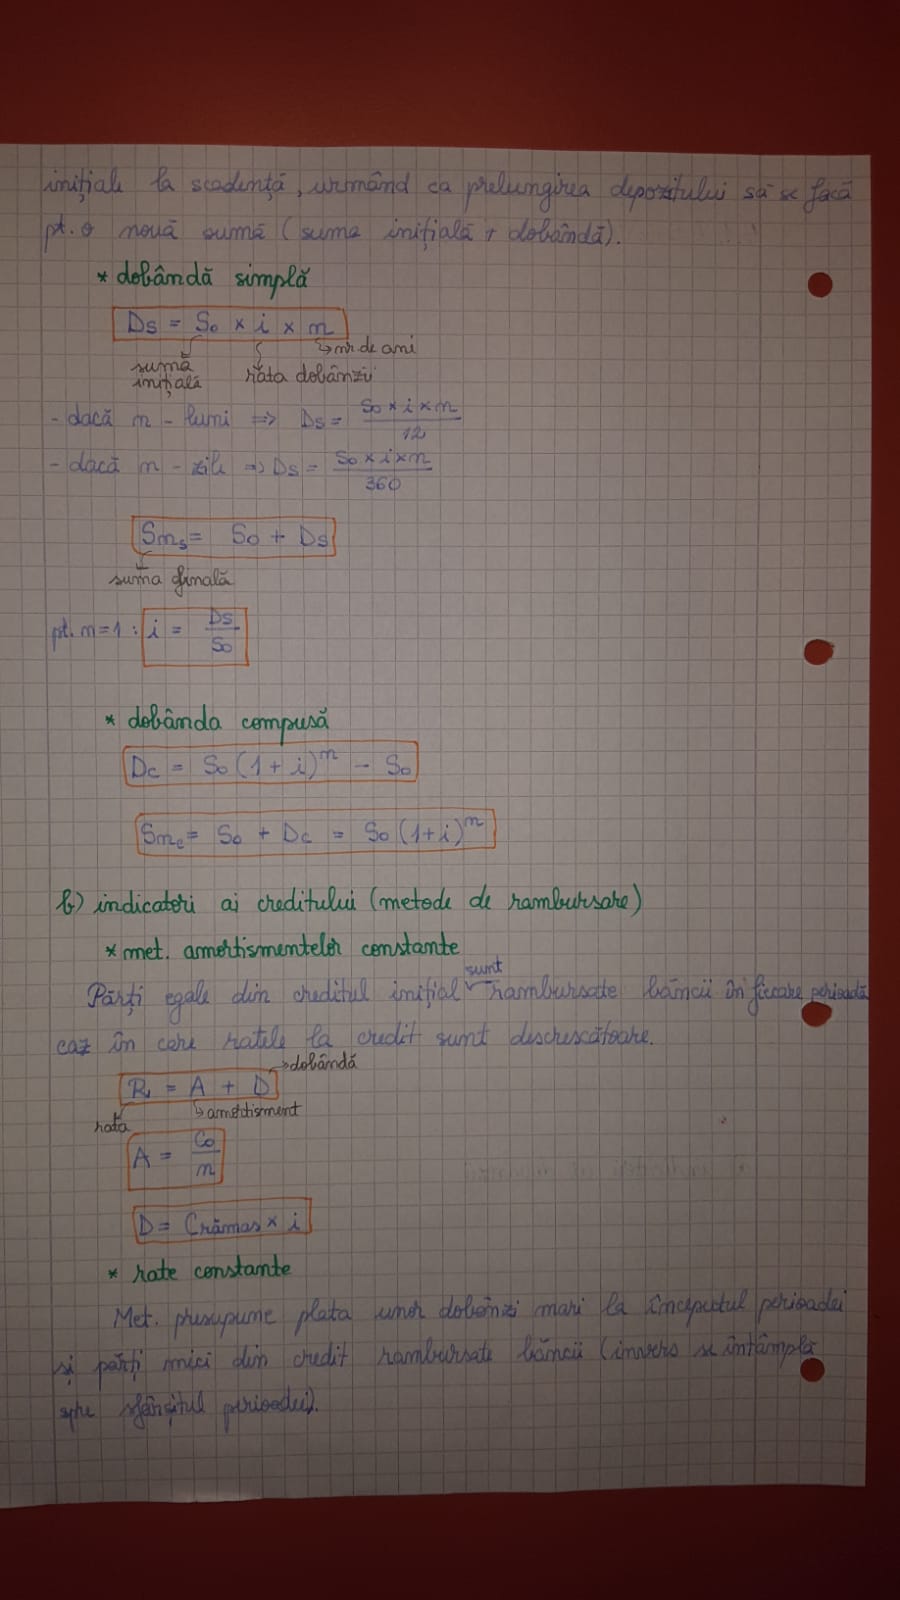 inițiale la scadență, urmând ca prelungirea depozitului să se facă
pt. o nouă sumă (suma inițială + dobândă).
* dobândă simplă
Ds = S0 × i × n
nr. de ani
suma inițială
rata dobânzii
- dacă n - luni => Ds = S0 × i × n / 12
- dacă n - zile => Ds = S0 × i × n / 360
Sns = S0 + Ds
suma finală
pt. n = 1 : i = Ds / S0
* dobânda compusă
Dc = S0 (1 + i)^n - S0
Snc = S0 + Dc = S0 (1 + i)^n
b) indicatori ai creditului (metode de rambursare)
* met. amortismentelor constante
sunt
Părți egale din creditul inițial rambursate băncii în fiecare perioadă
caz în care ratele la credit sunt descrescătoare.
→ dobândă
R1 = A + D
rata
amortisment
A = C0 / n
D = Crămas × i
* rate constante
Met. presupune plata unor dobânzi mari la începutul perioadei
și părți mici din credit rambursate băncii (invers se întâmplă
spre sfârșitul perioadei).